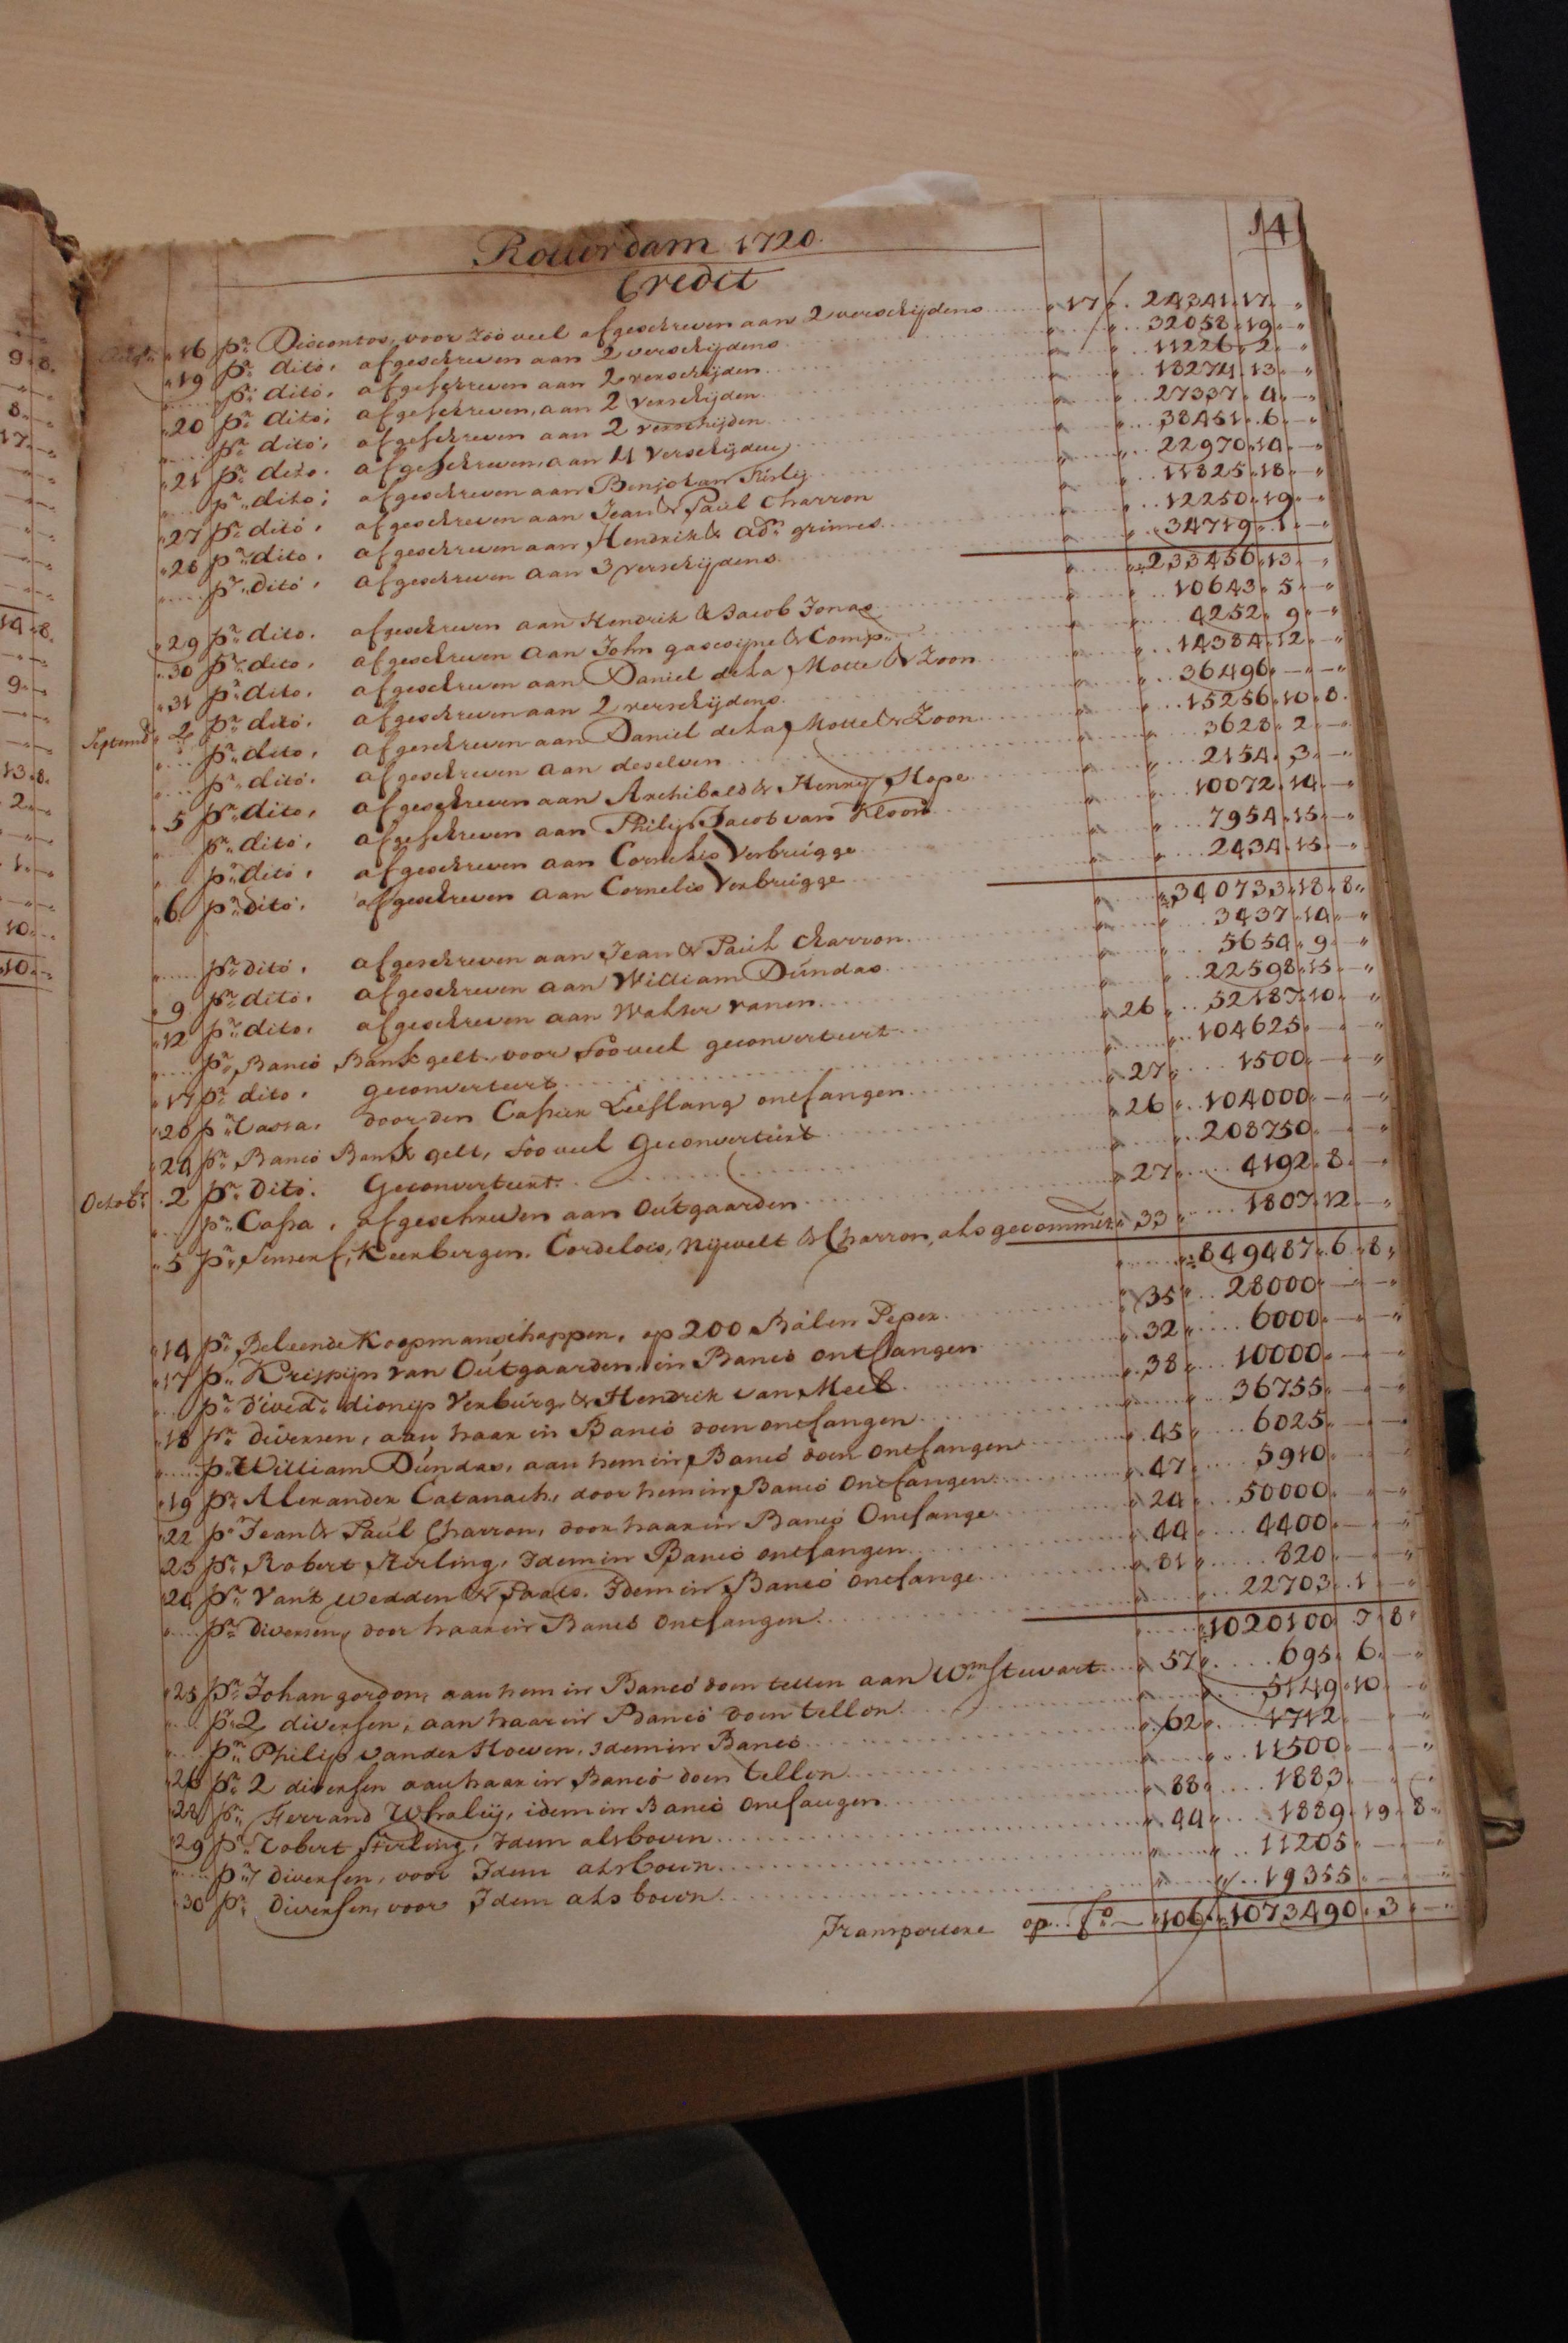 14
Rotterdam 1720.
Credit
Augt. 16 pr. Discontos, voor zoo veel afgeschreven aan 2 verschijdens 17 24341 17 "
19 pr. dito, afgeschreven aan 2 verschijdens 32058 19 "
pr. dito, afgeschreven aan 2 verschijden 11226 2 "
20 pr. dito, afgeschreven aan 2 verschijden 18271 13 "
pr. dito, afgeschreven aan 2 verschijden 27337 4 "
21 pr. dito, afgeschreven aan 4 verschijden 38451 6 "
pr. dito, afgeschreven aan 22970 14 "
27 pr. dito, afgeschreven aan Jean & Paul Charron 11825 18 "
28 pr. dito, afgeschreven aan Hendrik & Adr. grimes 12250 19 "
pr. dito, afgeschreven aan 3 verschijdens 34719 1 "
233456 13 "
29 pr. dito, afgeschreven aan Hendrik & Jacob Jonas 10643 5 "
30 pr. dito, afgeschreven aan John gascoijne & Comp. 4252 9 "
31 pr. dito, afgeschreven aan Daniel de La Motte & Zoon 14384 12 "
Septemb. 2 pr. dito, afgeschreven aan 2 verschijdens 36496 — —
pr. dito, afgeschreven aan Daniel de La Motte & Zoon 15256 10 8
pr. dito, afgeschreven aan deselven 3628 2 —
5 pr. dito, afgeschreven aan Archibald & Henry Hope 2154 3 —
pr. dito, afgeschreven aan Philip Jacob van 10072 14 —
pr. dito, afgeschreven aan Cornelis Verbrugge 7954 15 —
6 pr. dito, afgeschreven aan Cornelis Verbrugge 2434 15 —
340733 18 8
pr. dito, afgeschreven aan Jean & Paul Charron 3437 14 "
9 pr. dito, afgeschreven aan William Dundas 5654 9 "
12 pr. dito, afgeschreven aan Walter vanen 22598 15 "
pr. Banco Bank gelt, voor soo veel geconverteert 26 52187 10 "
17 pr. dito, geconverteert 104625 — "
20 pr. Cassa, door den Cassier Leeflang ontfangen 27 1500 — "
24 pr. Banco Bank gelt, soo veel geconverteert 26 104000 — "
Octobr. 2 pr. Dito. Geconverteert 208750 — —
pr. Cassa, afgeschreven aan Outgaarden 27 4192 8 —
5 pr. Senserf, Keerbergen, Cordelois, Nijvelt & Charron, als gecommitt. 33 1807 12 —
849487 6 8
14 pr. Beleende Koopmanschappen, op 200 Balen Peper 35 28000 — "
17 pr. Krispijn van Outgaarden, in Banco ontfangen 32 6000 — "
pr. divid. dionijs Verburg & Hendrik van Meel 38 10000 — —
18 pr. diversen, aan haar in Banco doen ontfangen 36755 — —
pr. William Dundas, aan hem in Banco doen ontfangen 45 6025 — —
19 pr. Alexander Catanach, door hem in Banco ontfangen 47 5910 — —
22 pr. Jean & Paul Charron, door haar in Banco Ontfange 24 50000 — —
23 pr. Robert Sterling, Idem in Banco ontfangen 44 4400 — "
24 pr. Vant Wedden & Paats. Idem in Banco ontfange 81 820 — "
pr. Diversen, door haar in Banco ontfangen 22703 1 —
1020100 7 8
25 pr. Johan gordon, aan hem in Banco doen tellen aan Wm. Stuwart 57 695 6 "
pr. 2 diversen, aan haar in Banco doen tellen 5149 10 "
pr. Philip vander Hoeven, idem in Banco 62 1712 — "
26 pr. 2 diversen aan haar in Banco doen tellen 11500 — "
28 pr. Ferrand Whaleij, idem in Banco ontfangen 88 1883 — —
29 pr. Robert Sterling, Idem als boven 44 1889 19 8
pr. 7 diversen, voor Idem als boven 11205 — —
30 pr. diversen, voor Idem als boven 19355 — —
Transportere op fo. 106 1073490 3 —